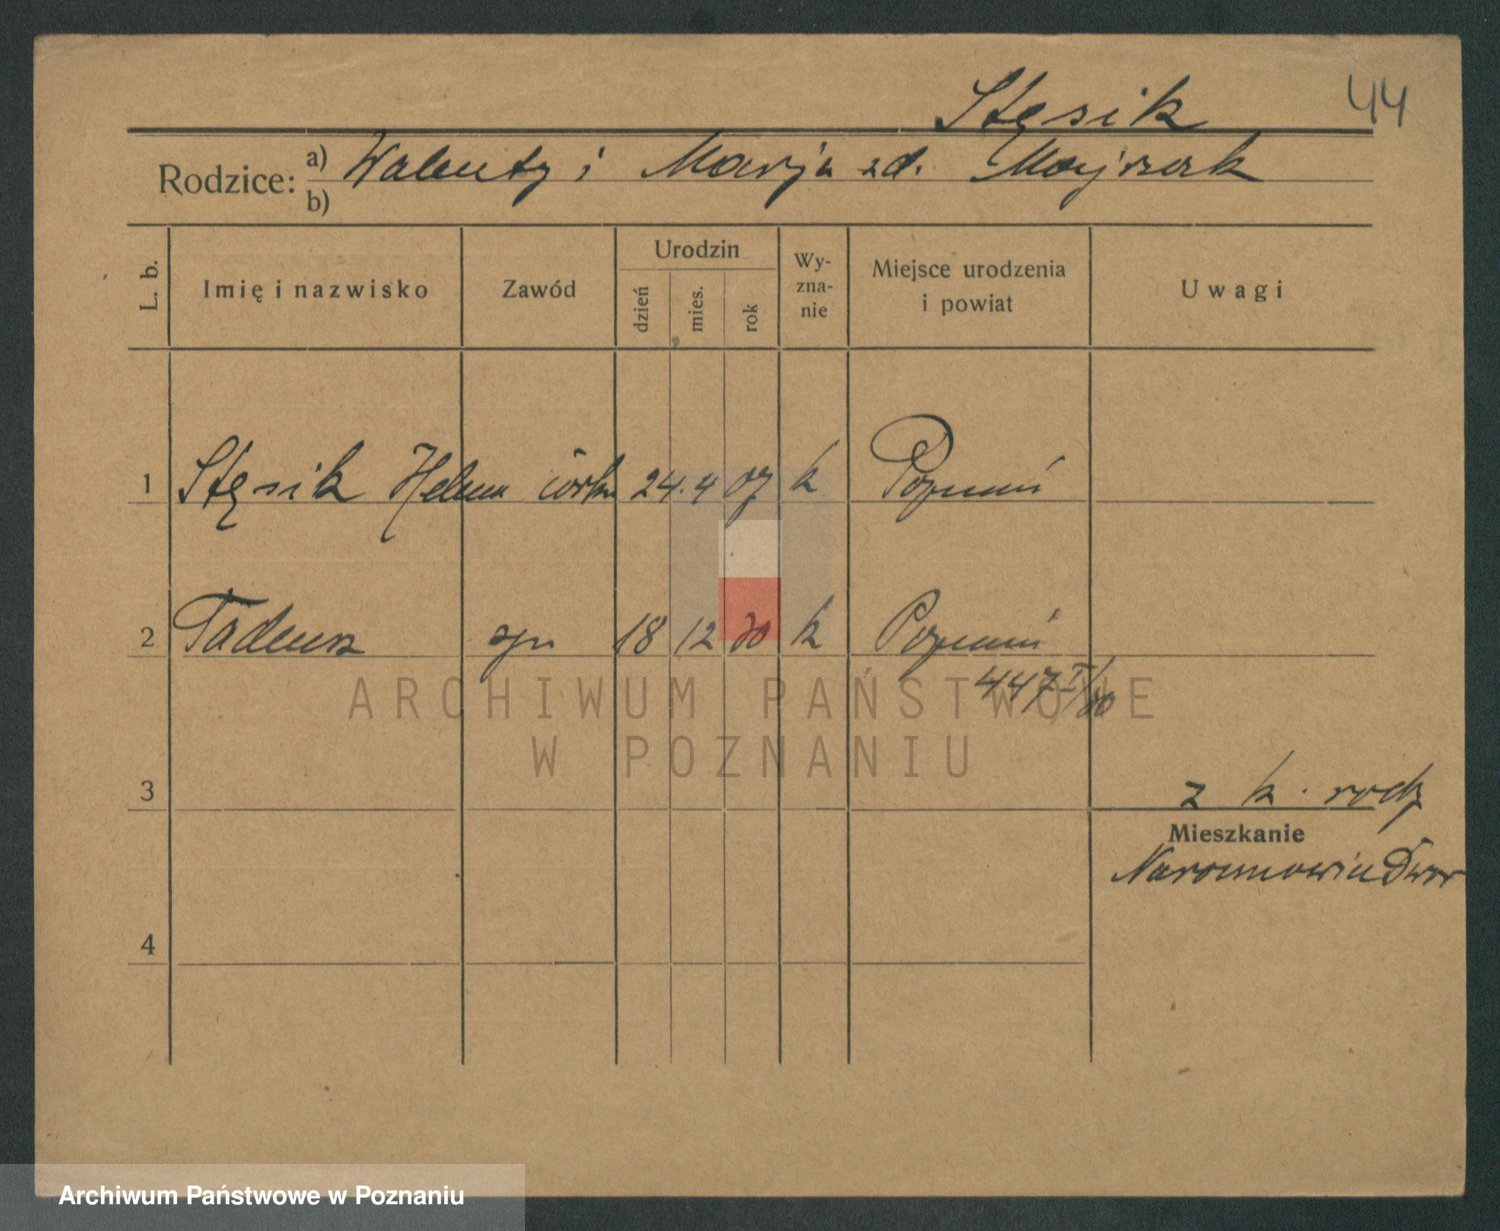 Stęsik 44
Rodzice: a) Walenty i Marja zd.
b)
L. b. Imię i nazwisko Zawód Urodzin dzień mies. rok Wy-zna-nie Miejsce urodzenia i powiat Uwagi
1 Stęsik Helena córka 24. 4 07 k Poznań
2 Tadeusz syn 18 12 30 k Poznań
ARCHIWUM PAŃSTWOWE
W POZNANIU
3 z k. rodz
Mieszkanie
4
Archiwum Państwowe w Poznaniu